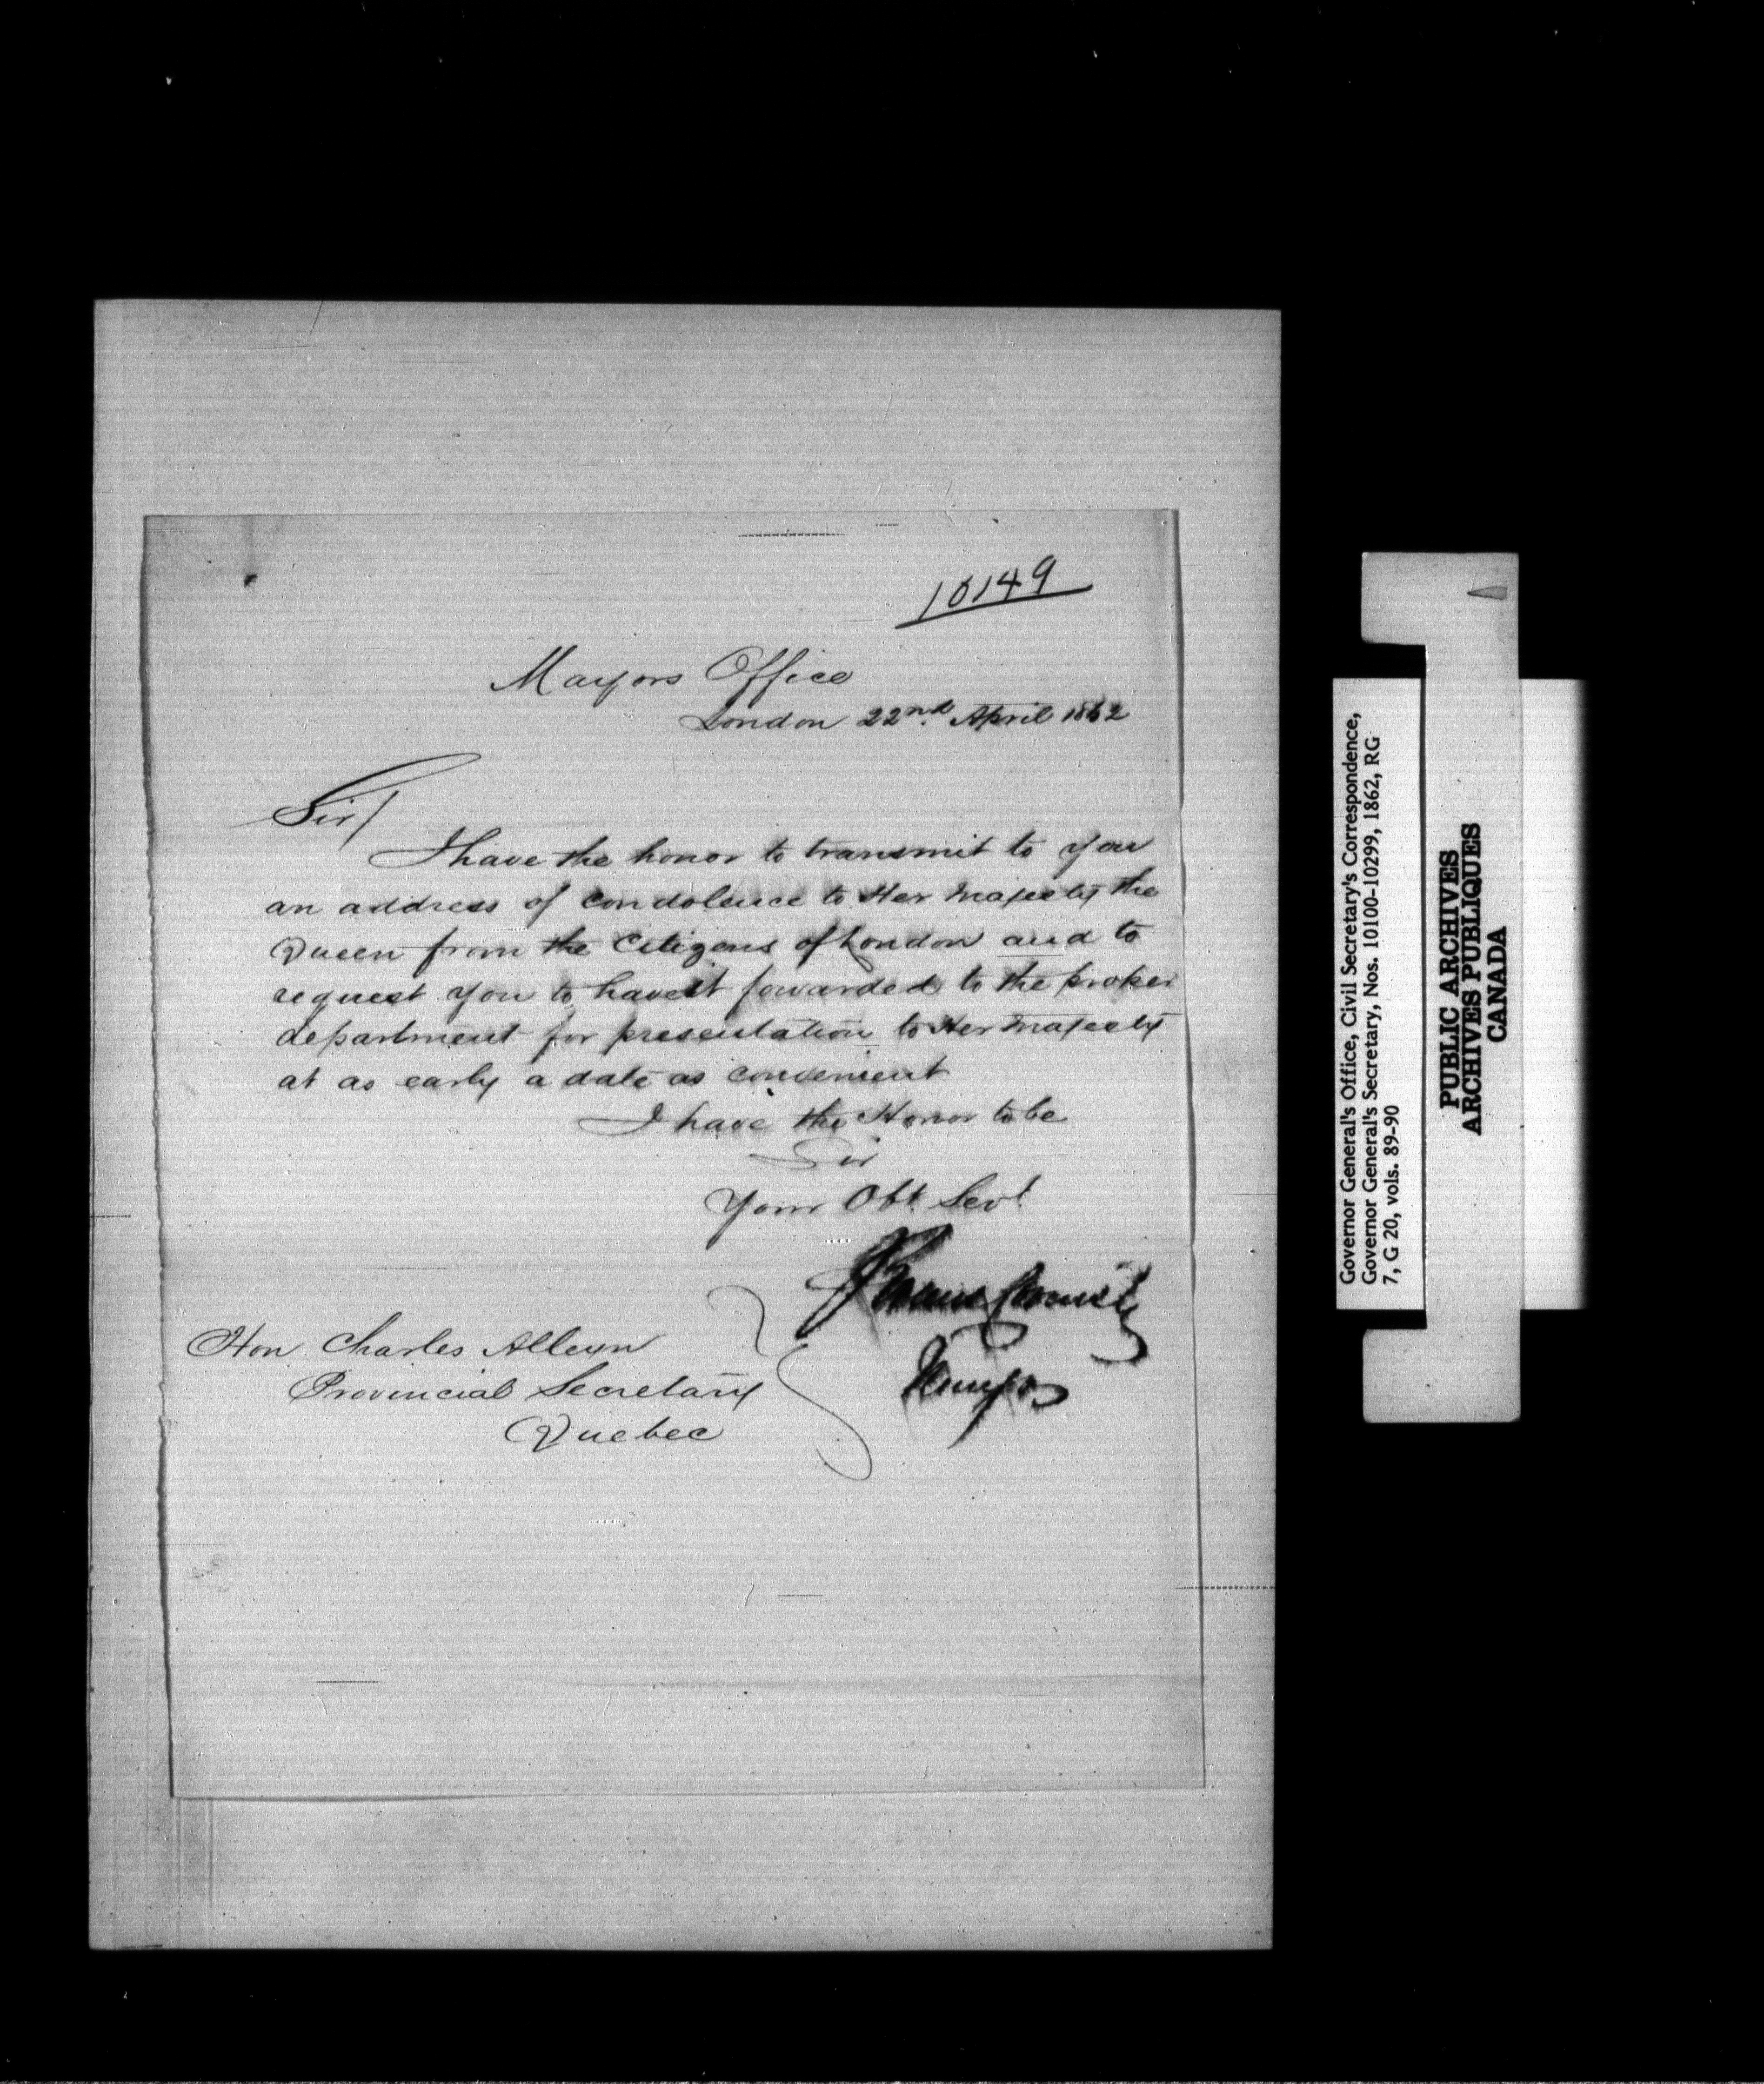 10149
Mayors Office
London 22nd. April 1862
Sir/
I have the honor to transmit to you
an address of condolence to Her Majesty the
Queen from the Citizens of London and to
request you to have it forwarded to the proper
department for presentation to Her Majesty
at as early a date as convenient
I have the Honor to be
Sir
Your Obt. Sevt.
Mayor
Hon Charles Alleyn
Provincial Secretary
Quebec
Governor General's Office, Civil Secretary's Correspondence,
Governor General's Secretary, Nos. 10100-10299, 1862, RG
7, G 20, vols. 89-90
PUBLIC ARCHIVES
ARCHIVES PUBLIQUES
CANADA